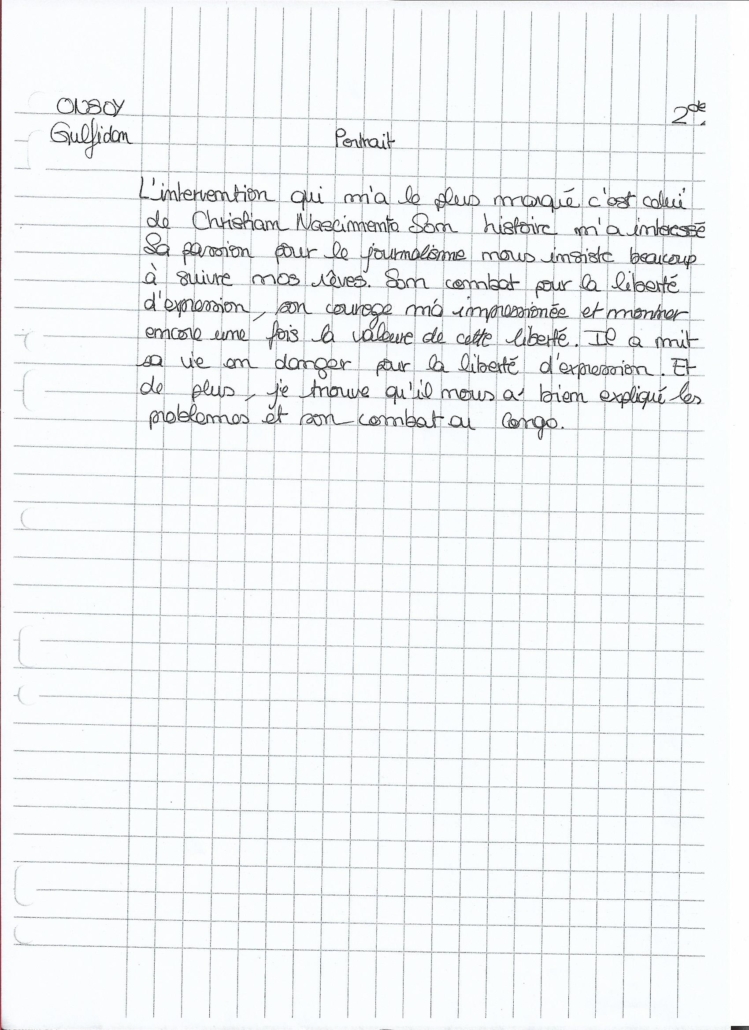 ONSOY
2de
Gulfidan
Portrait
L'intervention qui m'a le plus marqué c'est celui
de Christian Nascimento Son histoire m'a interessé
Sa passion pour le journalisme nous insiste beaucoup
à suivre nos rêves. Son combat pour la liberté
d'expression, son courage m'a impressionée et montrer
encore une fois la valeure de cette liberté. Il a mit
sa vie en danger pour la liberté d'expression. Et
de plus, je trouve qu'il nous a bien expliqué les
problemes et son combat au Congo.